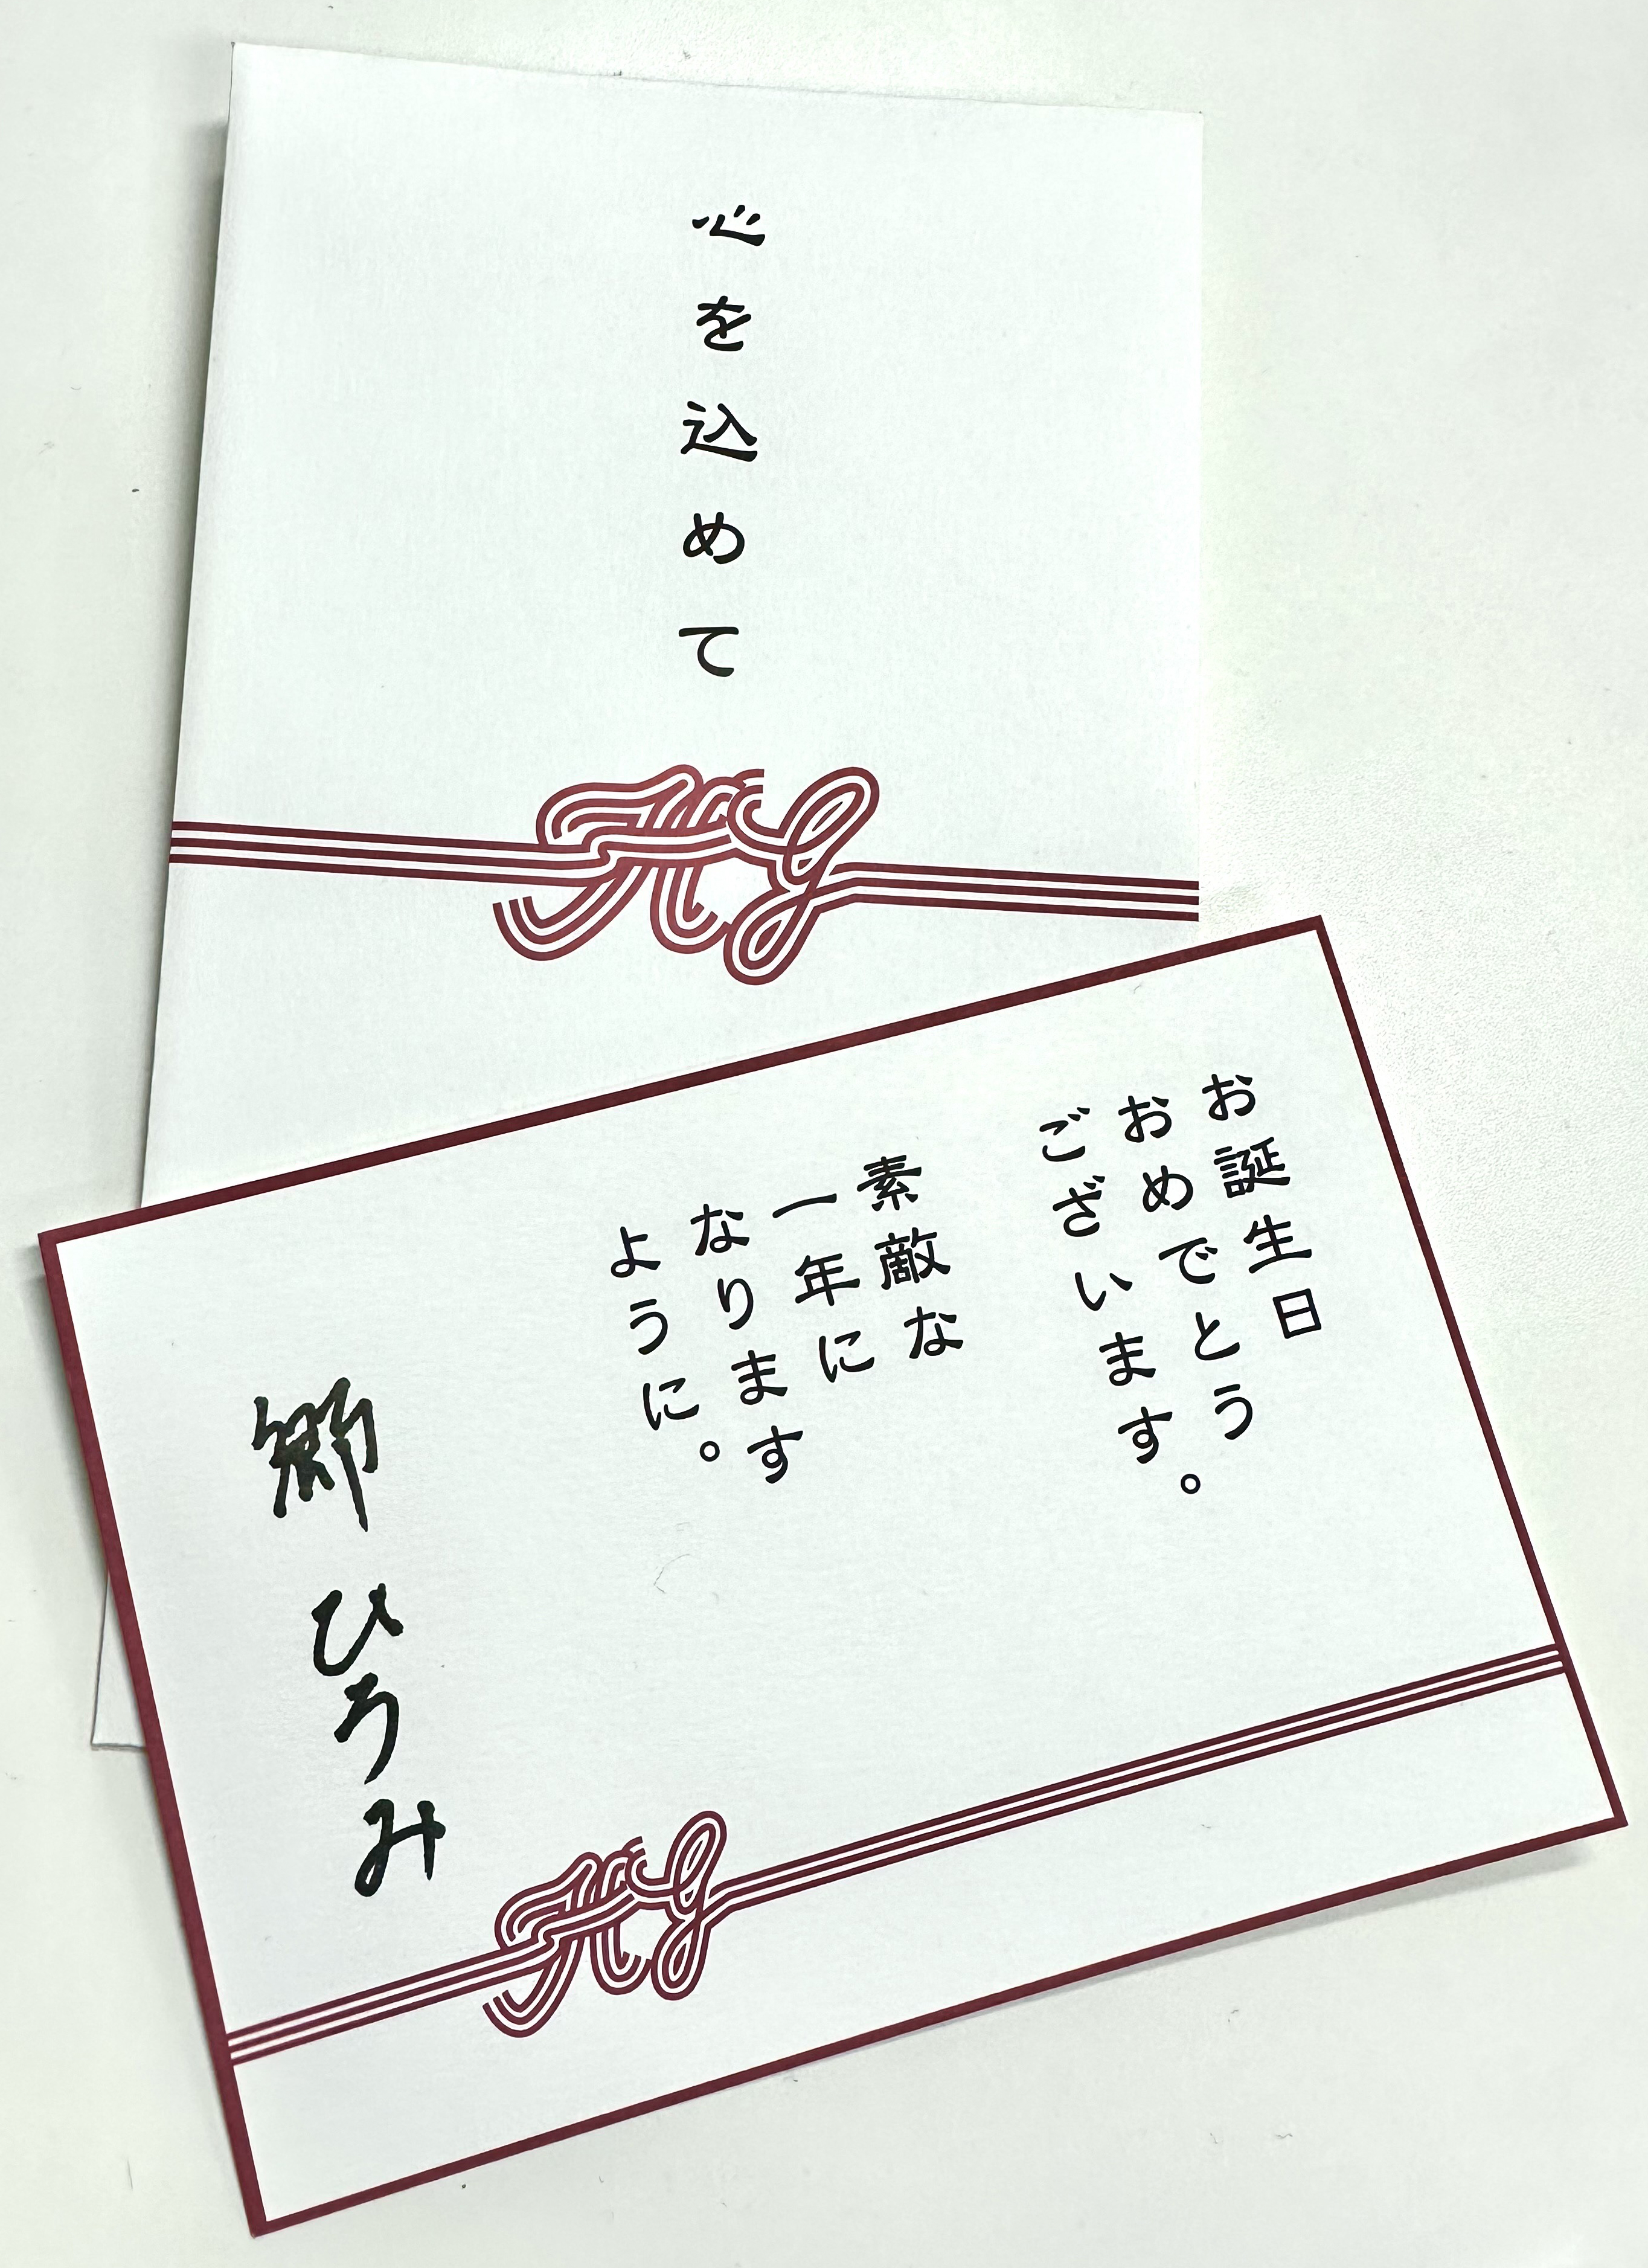 心を込めて
HG
お誕生日
おめでとう
ございます。
素敵な
一年に
なります
ように。
郷ひろみ
HG